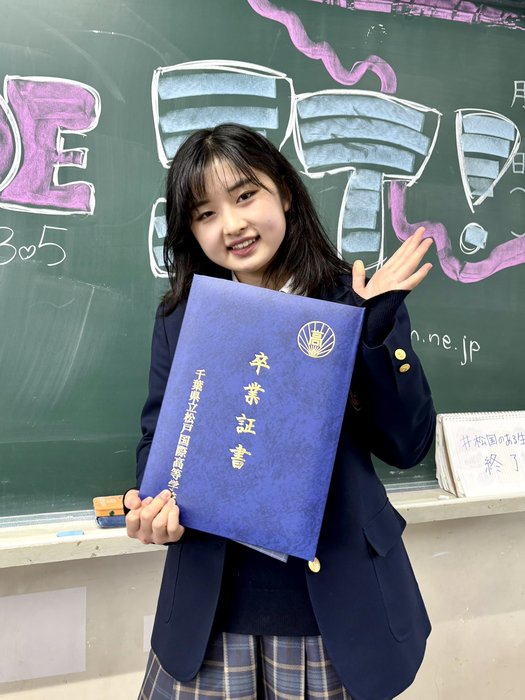 DE
3♡5
月
日
n.ne.jp
高
卒業証書
千葉県立松戸国際高等学
#松国のある生
終了